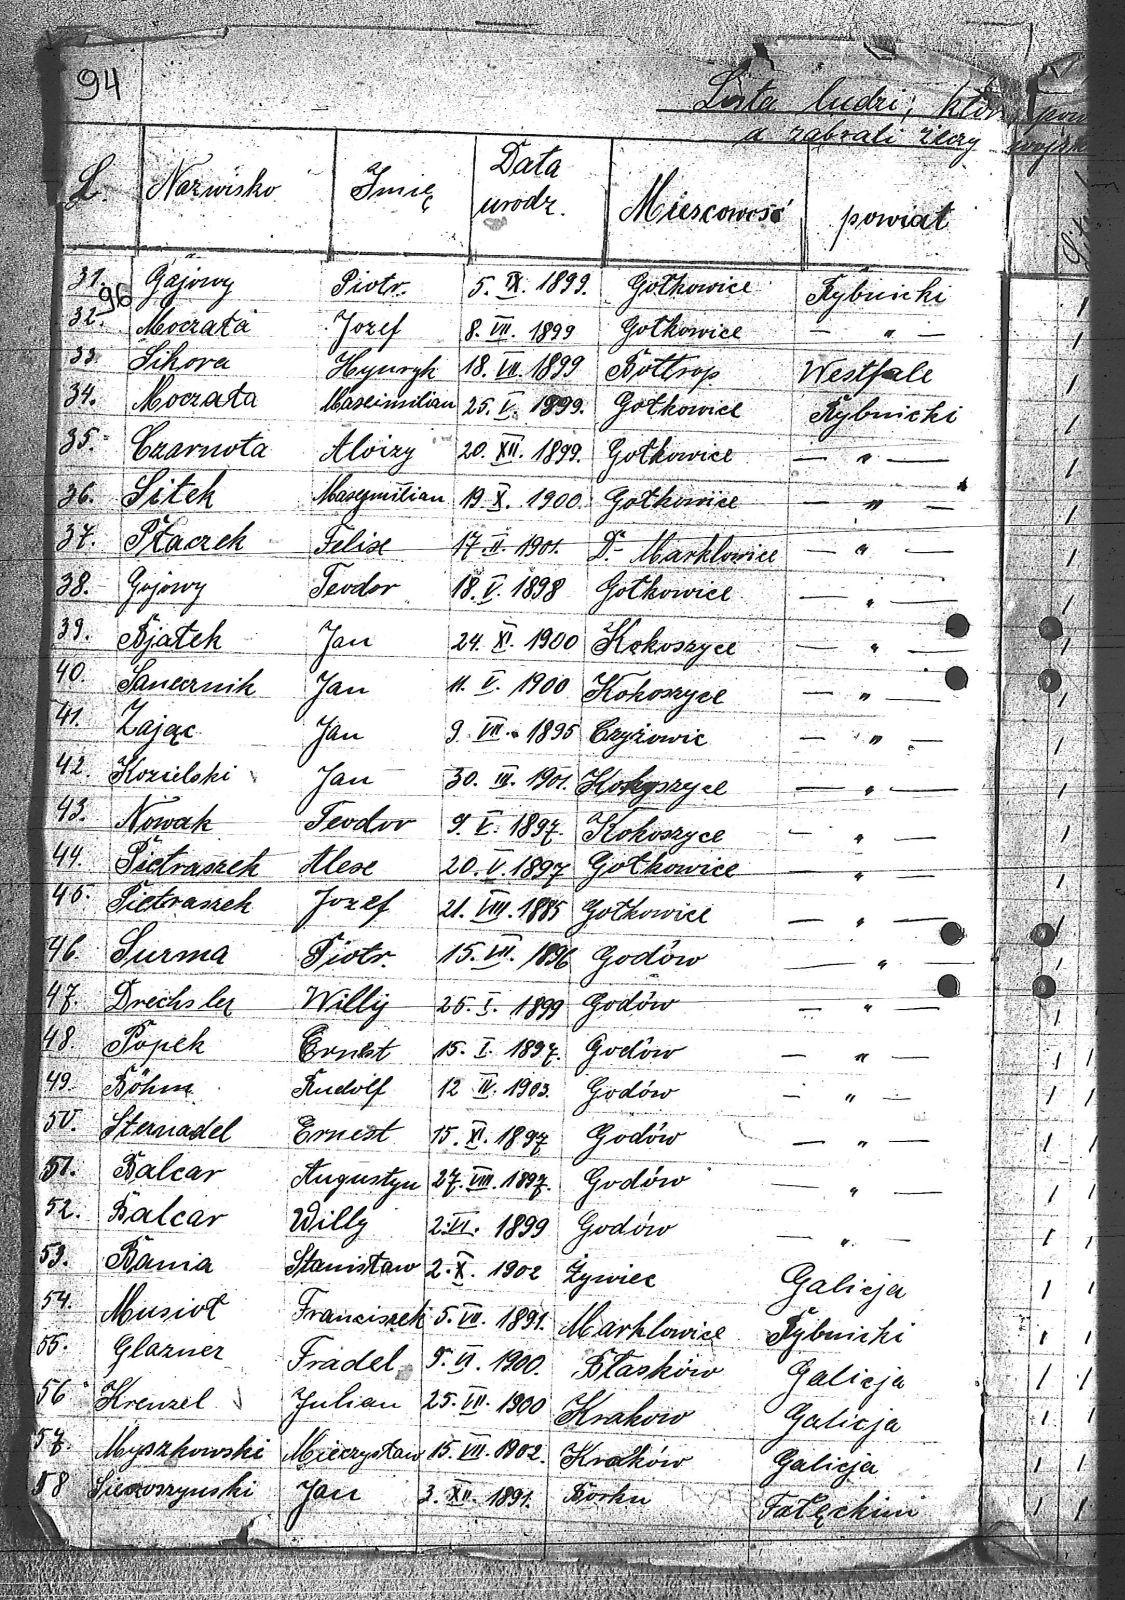 94
Lista ludzi, któr pow
a zabrali rzeczy wojsk
L. Nazwisko Imię Data urodz. Miescowość powiat
31. Gajowy Piotr. 5. IX. 1899. Gołkowice Rybnicki
96
32. Moczała Jozef 8. VII. 1899 Gołkowice — " —
33 Sikora Hynryk 18. VII. 1899 Bottrop Westfale
34. Moczała Maxsimilian 25. V. 1899. Gołkowice Rybnicki
35. Czarnota Aloizy 20. XII. 1899. Gołkowice — " —
36. Sitek Maxymilian 19. X. 1900. Gołkowice — " —
37. Ptaczek Felix 17. II. 1901. D. Marklowice — " —
38. Gojowy Teodor 18. V. 1898 Gołkowice — " —
39. Bjałek Jan 24. XI. 1900 Kokoszyce — " —
40. Sanecznik Jan 11. V. 1900 Kokoszyce — " —
41. Zając Jan 9. VII. 1895 Czyżowic — " —
42. Kozielski Jan 30. III. 1901. Kokoszyce — " —
43. Nowak Teodor 9. V. 1897. Kokoszyce — " —
44. Pietraszek Alex 20. V. 1897 Gołkowice — " —
45. Pietraszek Jozef 21. VIII. 1885 Gołkowice — " —
46. Surma Piotr. 15. VII. 1896 Godów — " —
47. Drechsler Willy 25. I. 1899 Godów — " —
48. Popek Ernest 15. I. 1897. Godów — " —
49. Böhm Rudolf 12 IV. 1903. Godów — " —
50. Sternadel Ernest 15. XI. 1897 Godów — " —
51. Balcar Augustyn 27. VIII. 1897. Godów — " —
52. Balcar Willy 2. VI. 1899 Godów — " —
53. Bania Stanisław 2. X. 1902 Żywiec Galicja
54. Musioł Franciszek 5. VII. 1891. Marklowice Rybnicki
55. Glazner Fradel 5. VI. 1900. Błasków Galicja
56 Krenzel Julian 25. VII. 1900 Krakow Galicja
57. Myszkowski Mieczysław 15. VII. 1902. Kraków Galicja
58 Sieroszynski Jan 3. XII. 1891. Borku Fałęckim